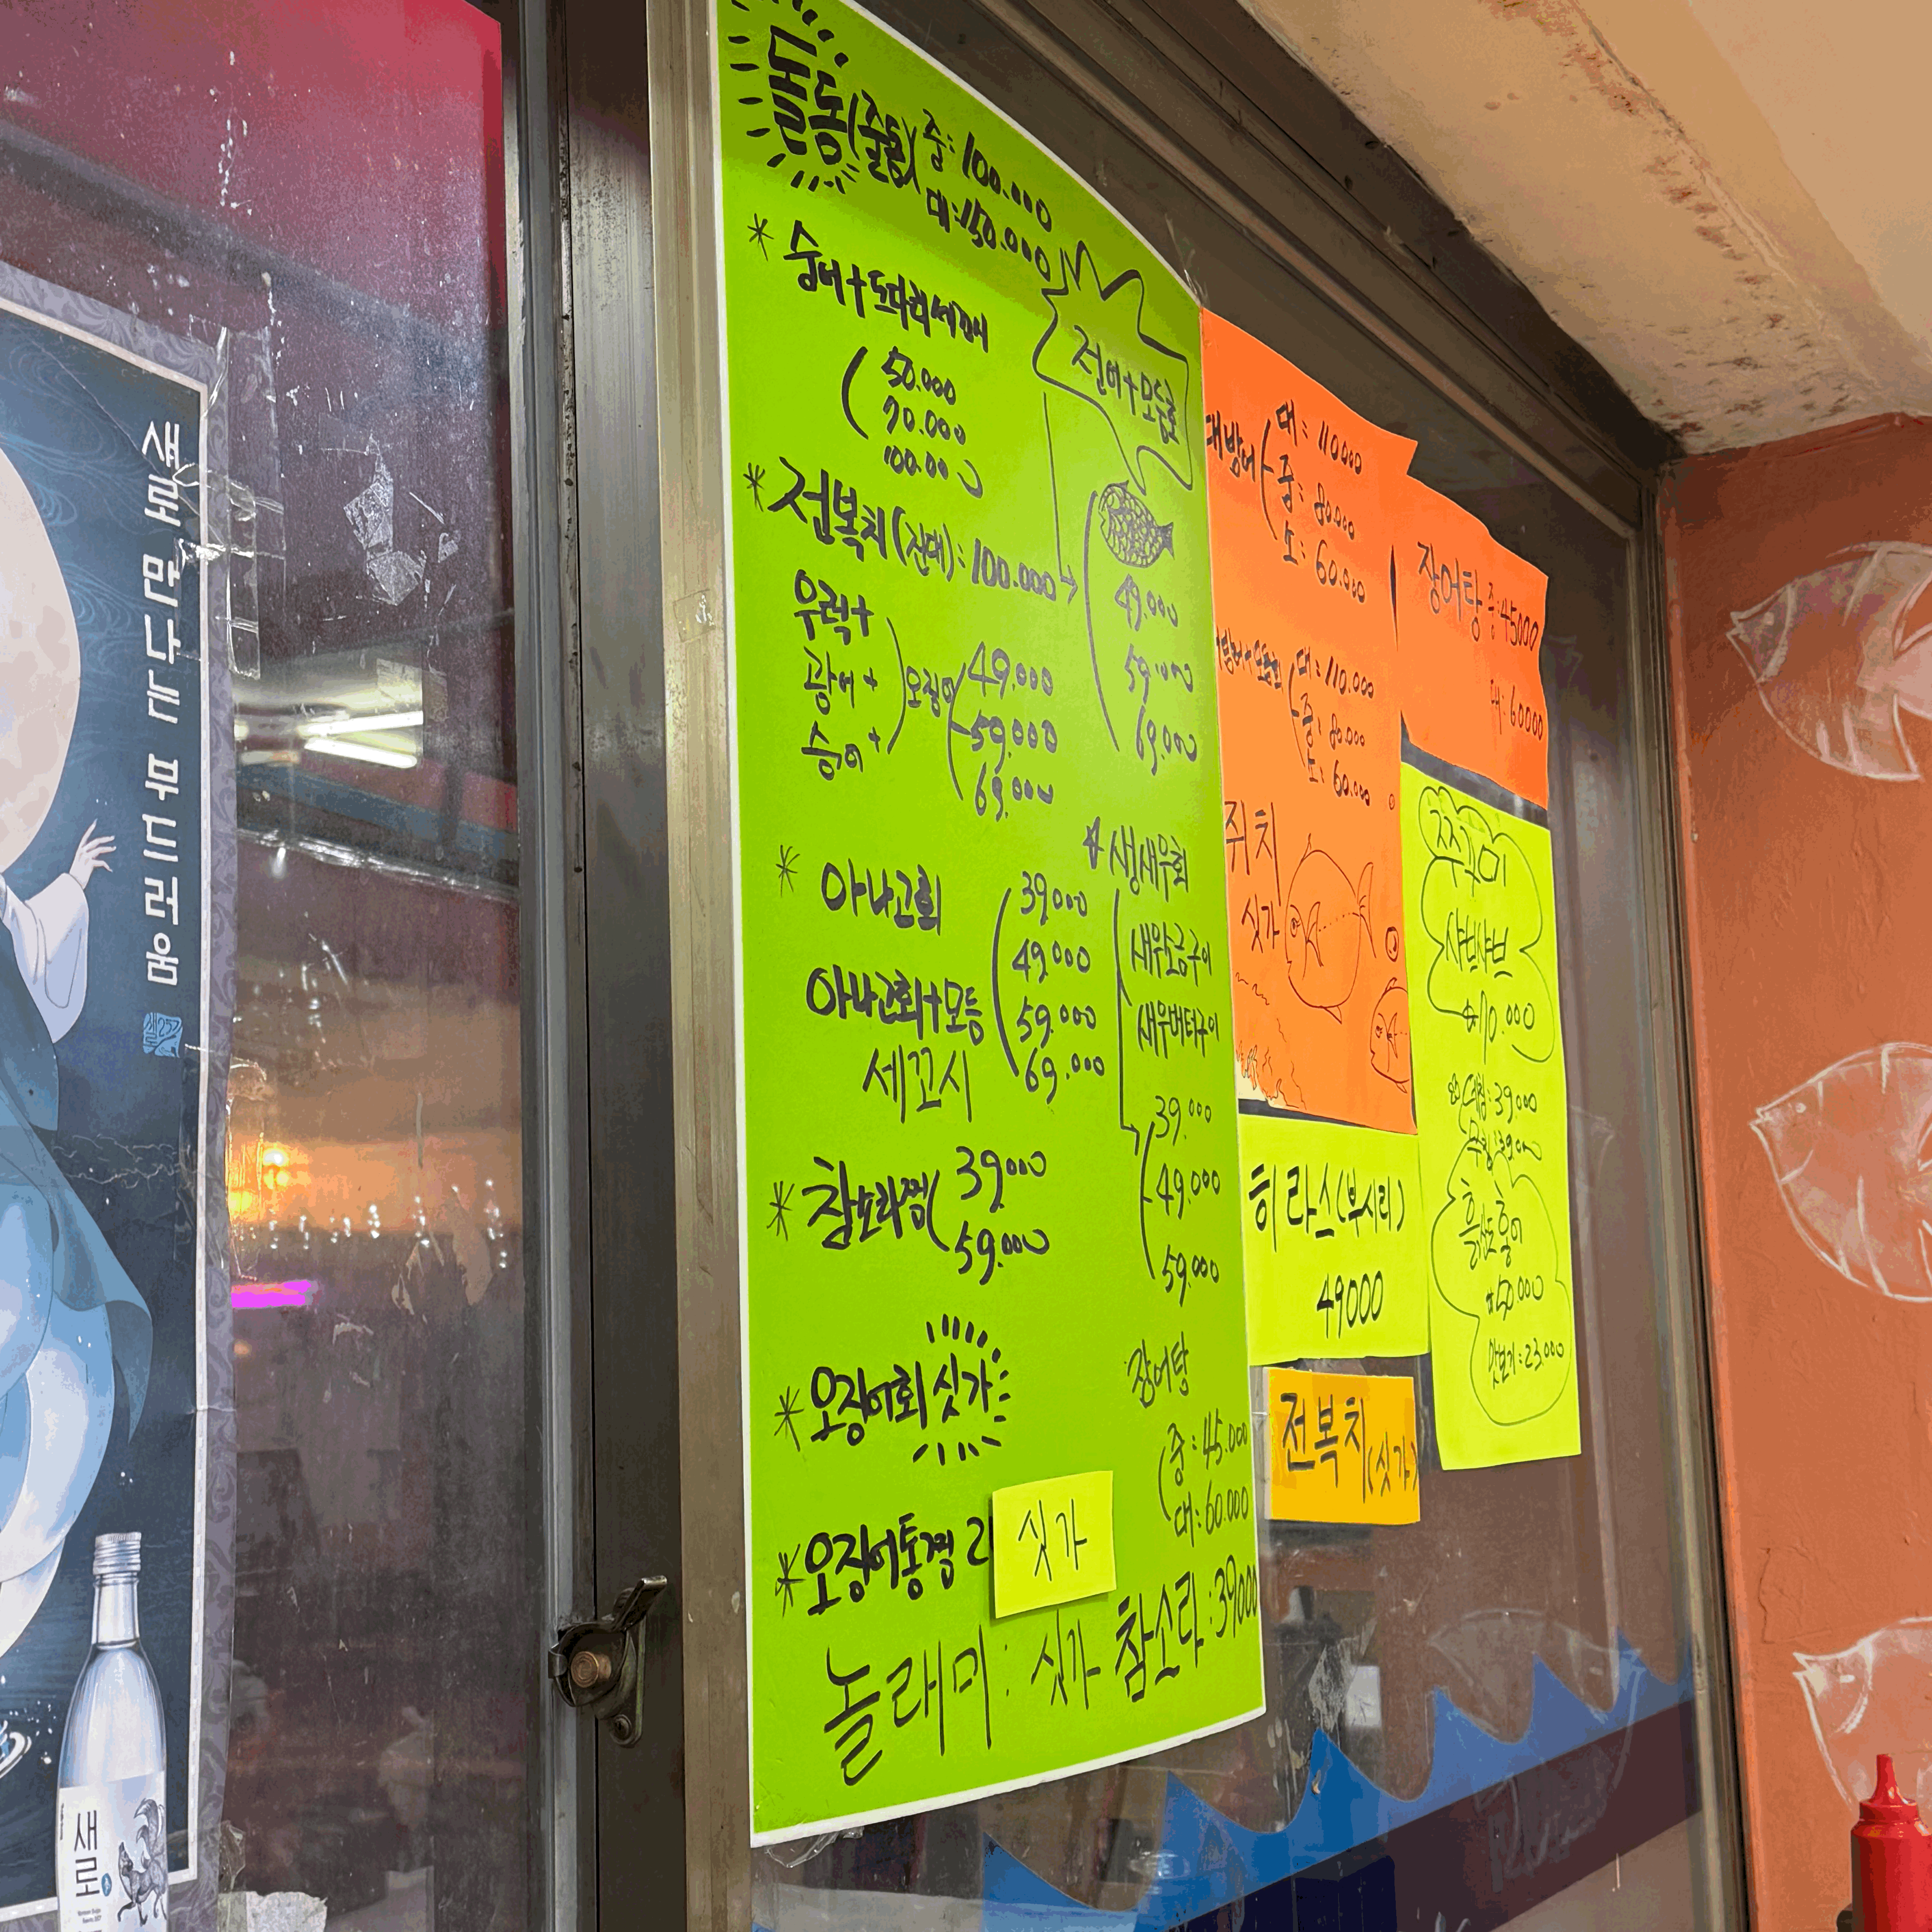 새로 만나는 부드러움
새로
돌돔(줄돔) 중: 100.000
대: 150.000
* 숭어+도다리세꼬시
50.000
70.000
100.000
전어+모듬회
49.000
59.000
69.000
* 전복치(진대): 100.000
우럭+
광어+
숭어+
오징어
49.000
59.000
69.000
* 아나고회
아나고회+모듬
세꼬시
39000
49.000
59.000
69.000
생새우회
새우소금구이
새우버터구이
39.000
49.000
59.000
* 참소라찜
39000
59.000
* 오징어회 싯가
장어탕
중: 45.000
대: 60.000
* 오징어통찜 2
싯가
놀래미: 싯가 참소라: 39000
대방어
대: 110000
중: 80.000
소: 60.000
대: 110.000
중: 80.000
소: 60.000
쥐치
싯가
히라스(부시리)
49000
전복치(싯가)
장어탕 중: 45000
대: 60000
쭈꾸미
샤브샤브
데침: 39000
무침: 39000
흑산도홍어
맛보기: 23.000